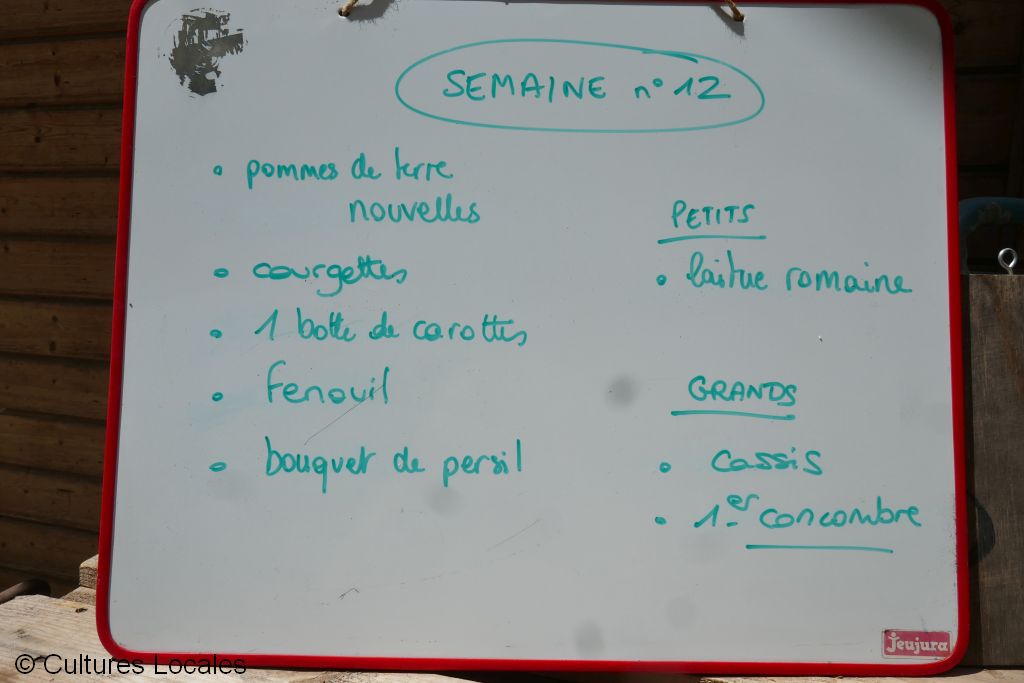 SEMAINE n° 12
• pommes de terre
nouvelles
• courgettes
• 1 botte de carottes
• Fenouil
• bouquet de persil
PETITS
• laitue romaine
GRANDS
• cassis
• 1er concombre
Jeujura
© Cultures Locales